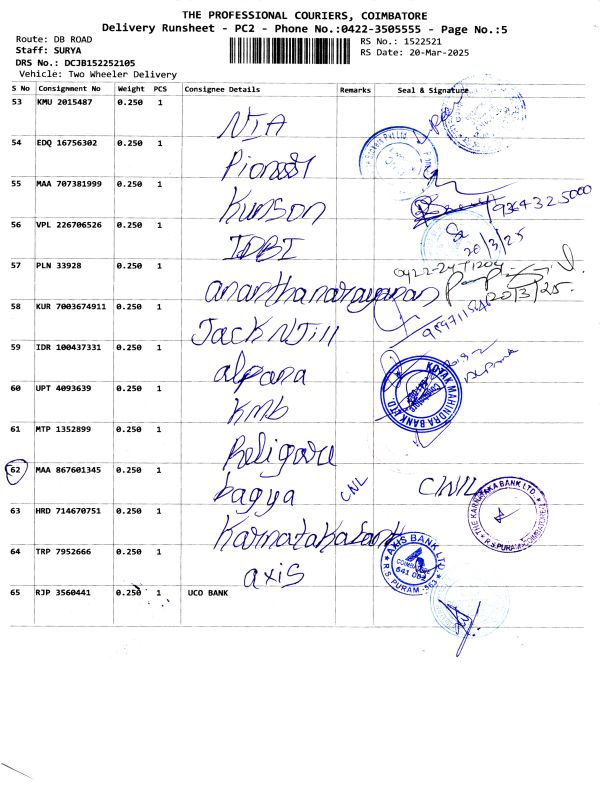 THE PROFESSIONAL COURIERS, COIMBATORE
Delivery Runsheet - PC2 - Phone No.:0422-3505555 - Page No.:5
Route: DB ROAD
RS No.: 1522521
Staff: SURYA
RS Date: 20-Mar-2025
DRS No.: DCJB152252105
Vehicle: Two Wheeler Delivery
S No Consignment No Weight PCS Consignee Details Remarks Seal & Signature
53 KMU 2015487 0.250 1
NIA
54 EDQ 16756302 0.250 1
Pioneer
55 MAA 707381999 0.250 1
Kunson
9364325000
56 VPL 226706526 0.250 1
IDBI
20/3/25
57 PLN 33928 0.250 1
ananthanarayanan
20/3/25.
58 KUR 7003674911 0.250 1
Jack N Jill
59 IDR 100437331 0.250 1
alpana
60 UPT 4093639 0.250 1
kmb
KOTAK MAHINDRA BANK LTD.
61 MTP 1352899 0.250 1
Religare
62 MAA 867601345 0.250 1
bagya CNL CNL
63 HRD 714670751 0.250 1
Karnataka bank
THE KARNATAKA BANK LTD.
R.S.PURAM-COIMBATORE
64 TRP 7952666 0.250 1
axis
AXIS BANK LTD
COIMBATORE
641 002
R S PURAM
65 RJP 3560441 0.250 1 UCO BANK